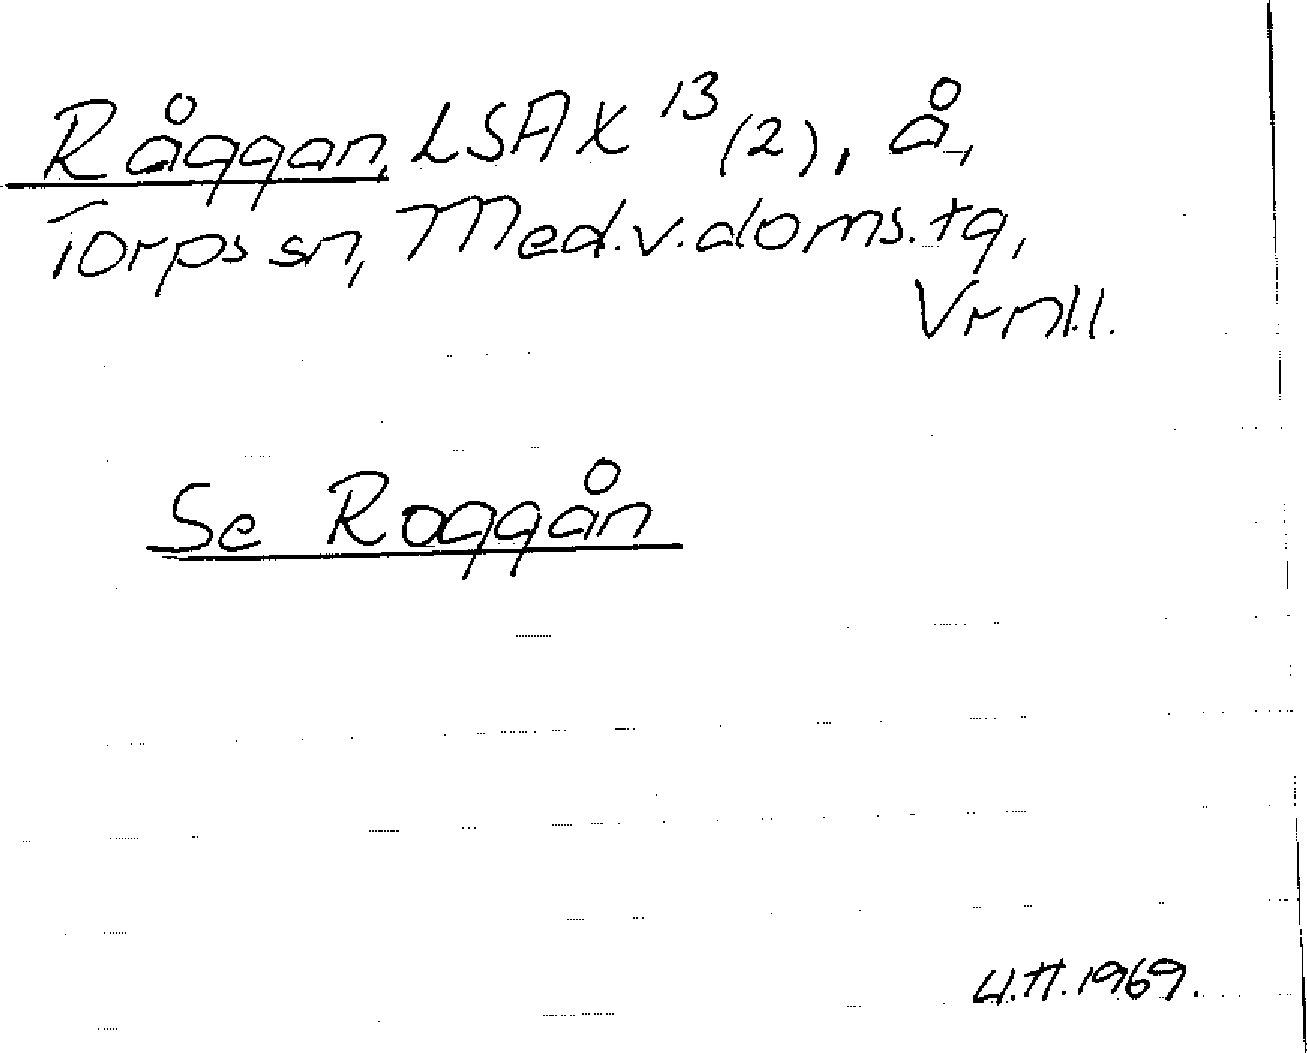 Råggan, LSA X 13 (2), å,
Torps sn, Med.v.doms.tg,
Vrnl.l.
Se Roggån
U.H. 1969.